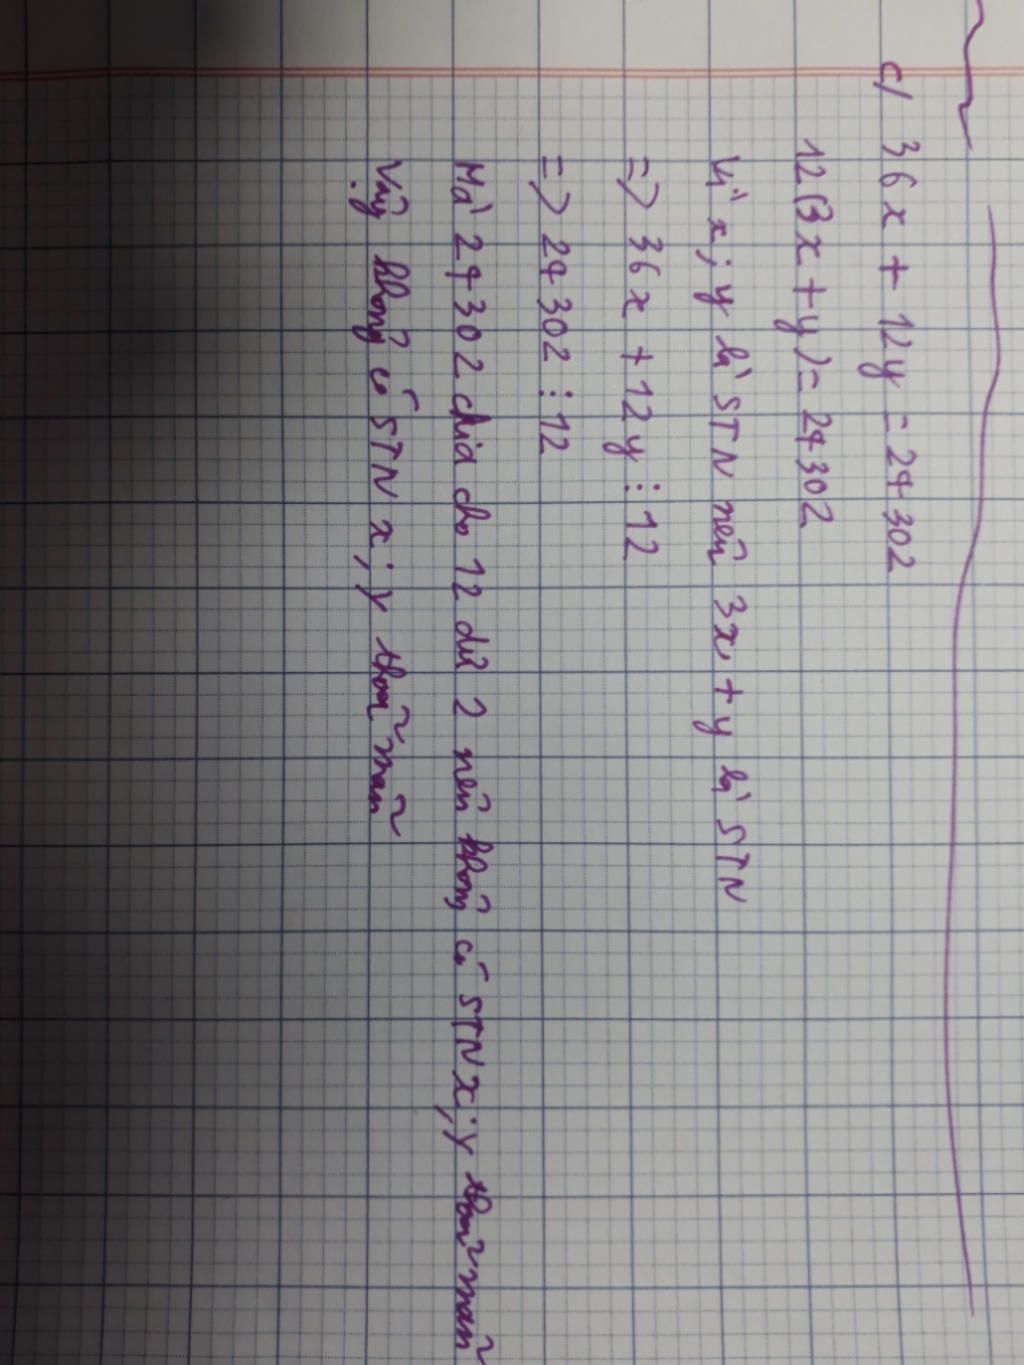 c/ 36x + 12y = 24302
12(3x + y) = 24302
Vì x; y là STN nên 3x + y là STN
=> 36x + 12y ⋮ 12
=> 24302 ⋮ 12
Mà 24302 chia cho 12 dư 2 nên không có STN x; y thoả mãn
Vậy không có STN x; y thoả mãn